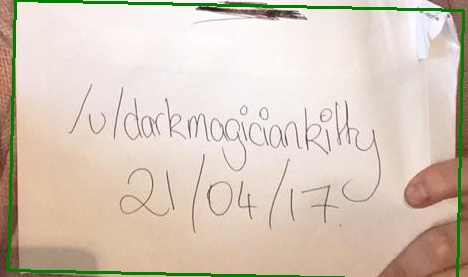 /u/darkmagiciankitty
21/04/17